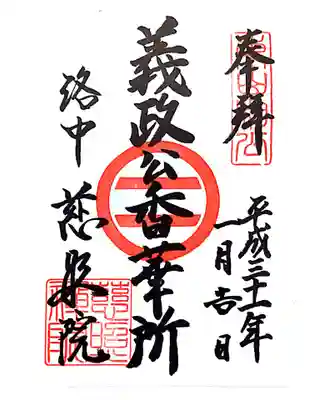 奉拝
平成三十一年
一月吉日
義政公香華所
洛中
慈照院